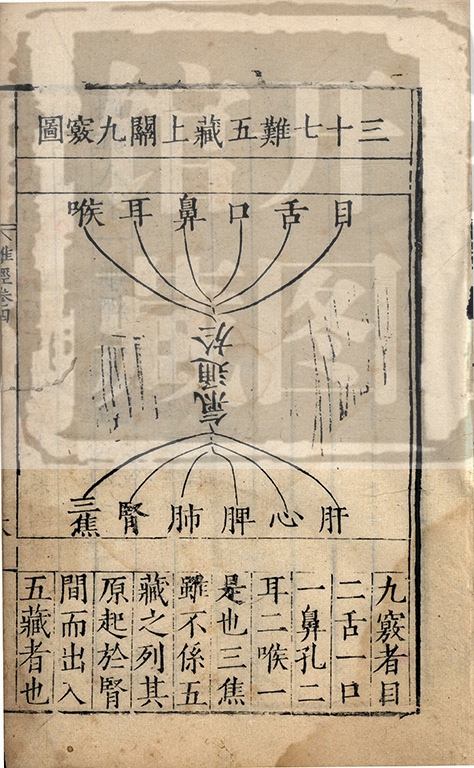 三十七難五藏上關九竅圖
目 舌 口 鼻 耳 喉
氣通於
肝 心 脾 肺 腎 三焦
九竅者目
二舌一口
一鼻孔二
耳二喉一
是也三焦
雖不係五
藏之列其
原起於腎
間而出入
五藏者也
難經卷四